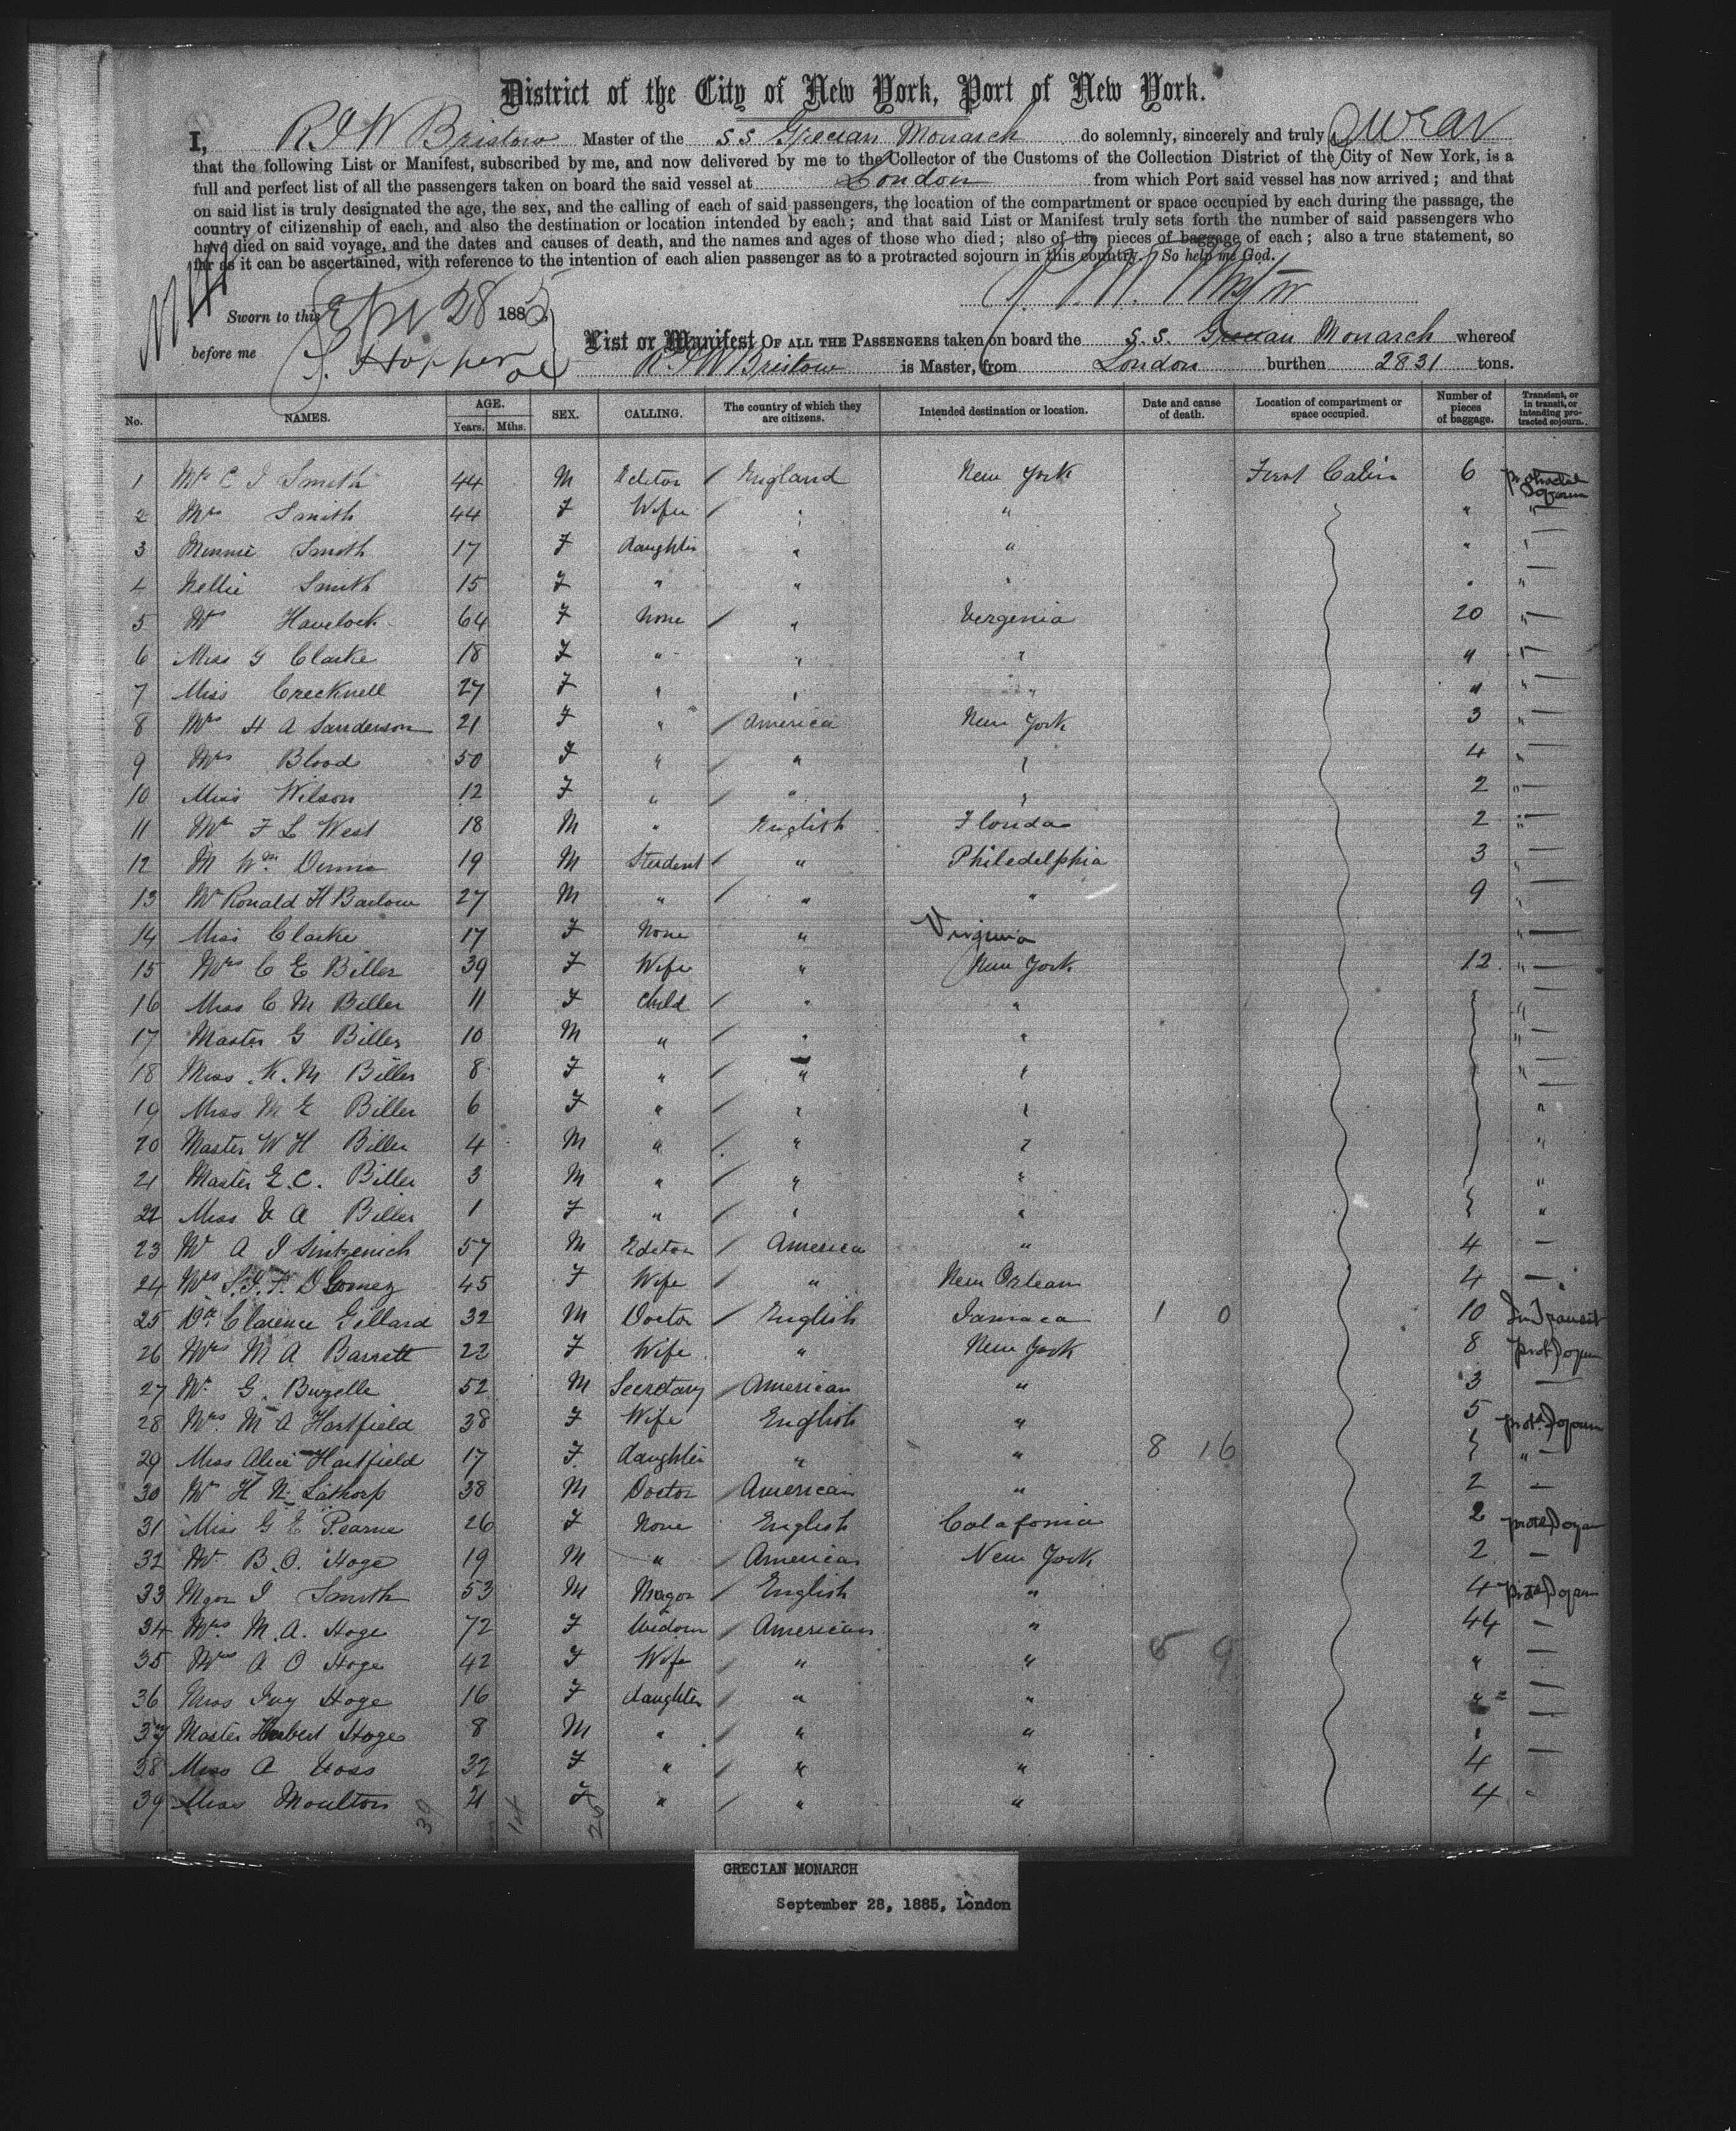 District of the City of New York, Port of New York.
I, R J W Bristow Master of the S S Grecian Monarch do solemnly, sincerely and truly SWEAR
that the following List or Manifest, subscribed by me, and now delivered by me to the Collector of the Customs of the Collection District of the City of New York, is a
full and perfect list of all the passengers taken on board the said vessel at London from which Port said vessel has now arrived; and that
on said list is truly designated the age, the sex, and the calling of each of said passengers, the location of the compartment or space occupied by each during the passage, the
country of citizenship of each, and also the destination or location intended by each; and that said List or Manifest truly sets forth the number of said passengers who
have died on said voyage, and the dates and causes of death, and the names and ages of those who died; also of the pieces of baggage of each; also a true statement, so
far as it can be ascertained, with reference to the intention of each alien passenger as to a protracted sojourn in this country. So help me God.
Sworn to this 28 1885
before me Hopper
List or Manifest OF ALL THE PASSENGERS taken on board the S. S. Grecian Monarch whereof
R J W Bristow is Master, from London burthen 2831 tons.
No. NAMES. AGE. Years. Mths. SEX. CALLING. The country of which they are citizens. Intended destination or location. Date and cause of death. Location of compartment or space occupied. Number of pieces of baggage. Transient, or in transit, or intending protracted sojourn.
1 Mr C J Smith 44 M Editor / England New York First Cabin 6
2 Mrs Smith 44 F Wife / " " " "
3 Minnie Smith 17 F daughter " " " "
4 Nellie Smith 15 F " " " " "
5 Mrs Havelock 64 F None / " Vergenia 20 "
6 Miss G Clarke 18 F " " " " "
7 Miss Crecknell 27 F " " " " "
8 Mrs H A Sanderson 21 F " / America New York 3 "
9 Mrs Blood 50 F " / " " 4 "
10 Miss Wilson 12 F " / " " 2 "
11 Mr F L West 18 M " English Florida 2 "
12 M Wm Dunn 19 M Student / " Philedelphia 3 "
13 Mr Ronald H Barlow 27 M " / " " 9 "
14 Miss Clarke 17 F None " Virginia "
15 Mrs C E Biller 39 F Wife " New York 12 "
16 Miss C M Biller 11 F Child / " " "
17 Master G Biller 10 M " / " " "
18 Miss K. M Biller 8 F " / " " "
19 Miss M E Biller 6 F " / " " "
20 Master W H Biller 4 M " / " " "
21 Master E. C. Biller 3 M " / " " "
22 Miss A Biller 1 F " / " " "
23 Mr A J 57 M Editor / America " 4 —
24 Mrs D Gomez 45 F Wife / " New Orleans 4 —
25 Dr Clarence Gillard 32 M Doctor / English Jamaca 1 0 10 In Transit
26 Mrs M A Barrett 22 F Wife " New York 8
27 Mr G. Buzelle 52 M Secretary / American " 3 —
28 Mrs. M A Hartfield 38 F Wife English " 5
29 Miss Alice Hartfield 17 F daughter " " 8 16 "
30 Mr H N Lathorp 38 M Doctor / American " 2 —
31 Miss G E Pearne 26 F None English Calafornia 2
32 Mr B. O. Hoge 19 M " / American New York 2 —
33 Mgor J Smith 53 M Magor / English " 4
34 Mrs. M. A. Hoge 72 F Widow / American " 44 —
35 Mrs A O Hoge 42 F Wife / " " 5 9 " —
36 Miss Ivy Hoge 16 F daughter / " " " —
37 Master Herbert Hoge 8 M " / " " " —
38 Miss A 32 F " / " " 4 —
39 Miss Moulton 21 F " / " " 4
39 26
GRECIAN MONARCH
September 28, 1885, London